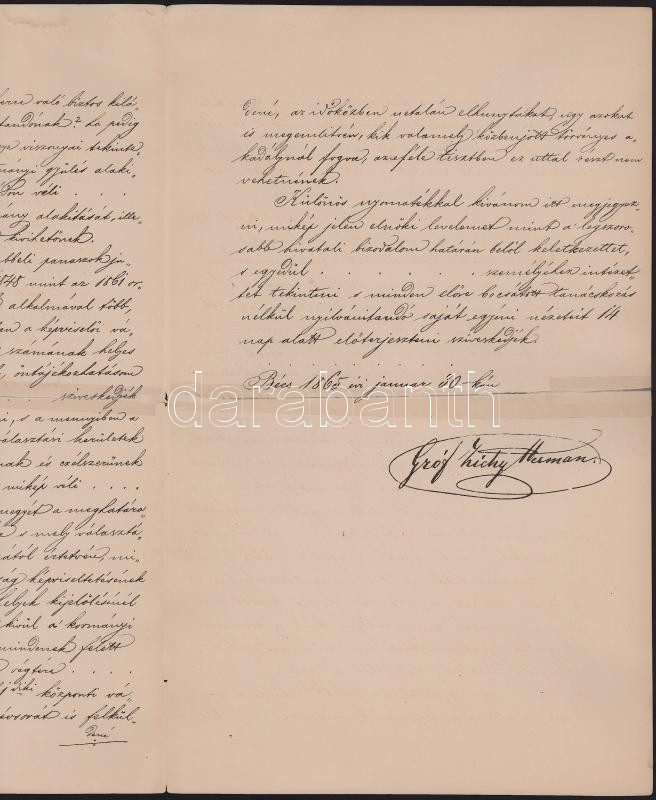 erre való biztos kilá„
tandónak? ha pedig
viszonyai tekinte„
mányi gyülés alaki„
véli . . . .
ány alakitását, ille„
kivihetőnek.
tbeli panaszok
1848 mint az 1861
alkalmával több,
a képviselői vá„
számának helyes
öntájékozhatásom
sziveskedjék
i, s a mennyiben a
választási kerületek
nak és czélszerünek
mikép véli . . . .
megyét a meghatáro„
s mely választá„
értetvén, mi„
ság képviseltetésének
helyek kijelölésénél
kivül a kormányi
mindenek felett
végtére . . . .
központi vá„
évsorát is felkül„
dené
dené, az időközben netalán elhunytakat, ugy azokat
is megemlitvén, kik valamely közbenjött törvényes a„
kadálynál fogva, azaféle tisztben ez uttal részt nem
vehetnének.
Különös nyomatékkal kivánom itt megjegyez„
ni, mikép jelen elnöki levelemet mint a legszoro„
sabb hivatali bizodalom határán belől keletkezettet,
s egyedül . . . . . . . . személyéhez intézet„
tet tekinteni s minden előre bocsátott tanácskozás
nélkül nyilvánitandó saját egyéni nézeteit 14
nap alatt előterjeszteni sziveskedjék.
Bécs 1865 évi január 30-kán
darabanth
Gróf Zichy Herman.